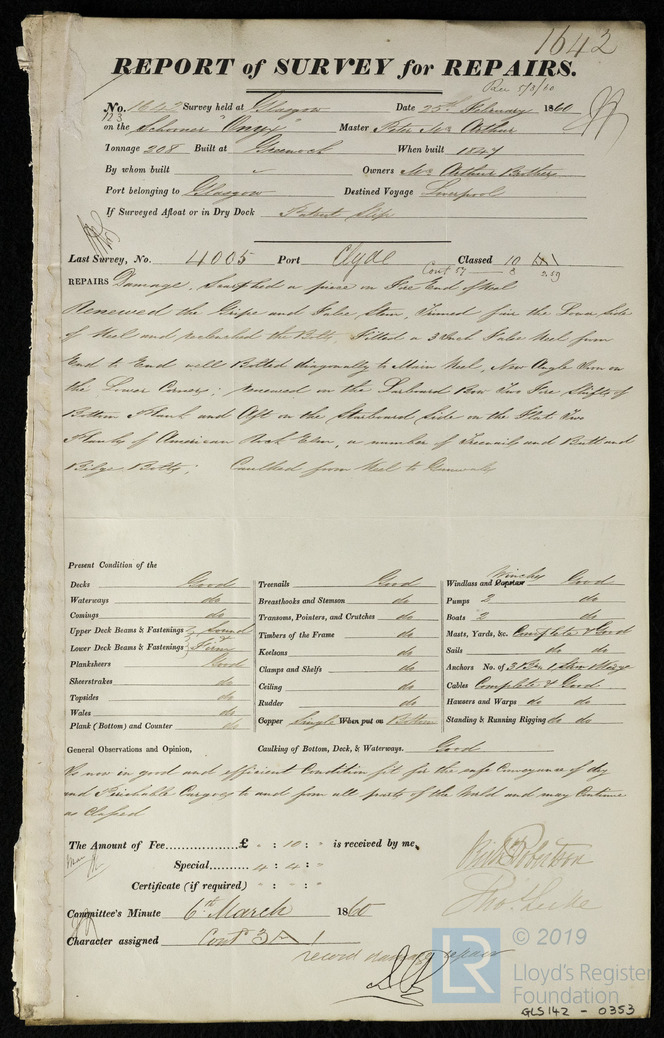 1642
REPORT of SURVEY for REPAIRS.
Rec 5/3/60
No. 1642 Survey held at Glasgow Date 25th February 1860
123
on the Schooner "Onyx" Master Peter McArthur
Tonnage 208 Built at Greenock When built 1847
By whom built Owners McArthur Brothers
Port belonging to Glasgow Destined Voyage Liverpool
If Surveyed Afloat or in Dry Dock Patent Slip
Last Survey, No. 4005 Port Clyde Classed 10 A1
Cont 57 8
REPAIRS Damage. Scarphed a piece on Fore End of Keel
Renewed the Gripe and False Stem, Trimed fair the Lower Side
of Keel and reclenched the Bolts, Fitted a 3 Inch False Keel from
End to End well Bolted diagonally to Main Keel, New Angle Iron on
the Lower Corners; renewed on the Larboard Bow Two Fore Shifts of
Bottom Plank and Aft on the Starboard Side on the Flat Two
Planks of American Rock Elm, a number of Treenails and Butt and
Bilge Bolts; Caulked from Keel to Gunwale
Present Condition of the
Decks Good
Waterways do
Comings do
Upper Deck Beams & Fastenings Sound
Lower Deck Beams & Fastenings & Firm
Planksheers Good
Sheerstrakes do
Topsides do
Wales do
Plank (Bottom) and Counter do
Treenails Good
Breasthooks and Stemson do
Transoms, Pointers, and Crutches do
Timbers of the Frame do
Keelsons do
Clamps and Shelfs do
Ceiling do
Rudder do
Copper Single When put on Bottom
Windlass and Capstan Winches Good
Pumps 2 do
Boats 2 do
Masts, Yards, &c. Complete & Good
Sails do do
Anchors No. of 3 Br 1 Strm
Cables Complete & Good
Hawsers and Warps do do
Standing & Running Rigging do do
General Observations and Opinion, Caulking of Bottom, Deck, & Waterways. Good
Is now in good and efficient Condition fit for the safe Conveyance of dry
and Perishable Cargoes to and from all parts of the World and may Continue
as Classed
The Amount of Fee £ " : 10 : " is received by me,
Special 4 : 4 : "
Certificate (if required) " : " : "
Robertson
Committee's Minute 6th March 1860
Character assigned Cont 3 A 1
record damage repairs
LR
© 2019
Lloyd's Register
Foundation
GLS142 - 0353